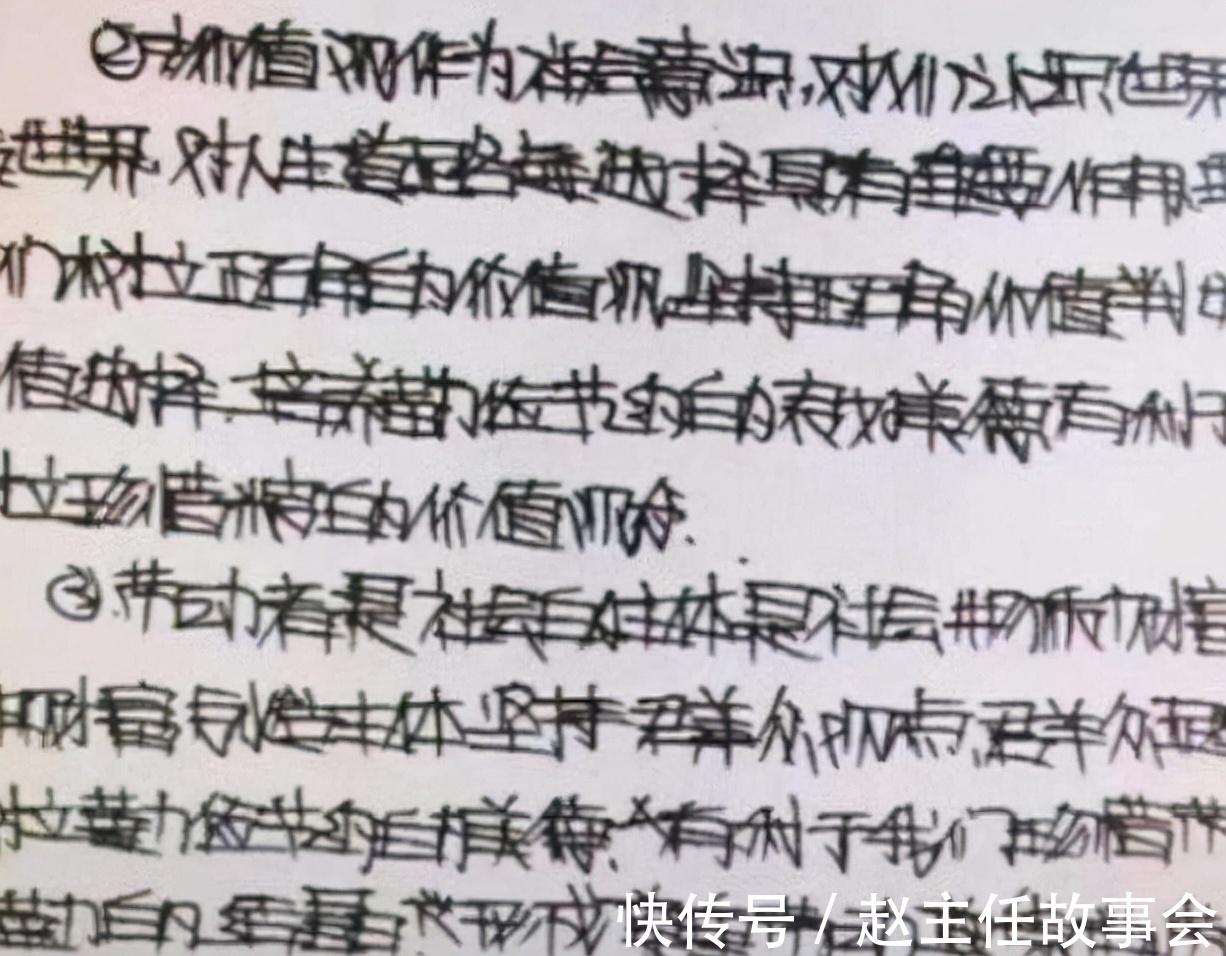 ②价值观作为社会意识,对人们认识世界
世界,对人生道路的选择具有重要作用,
们树立正确的价值观,坚持正确价值判
值选择,培养勤俭节约的美德有利于
立珍惜粮的价值观念.
③劳动者是社会的主体是社会物质财富
财富创造主体,坚持群众观点,群众
树立勤俭节约的美德,有利于我们珍惜劳
勤的 形成
快传号 / 赵主任故事会